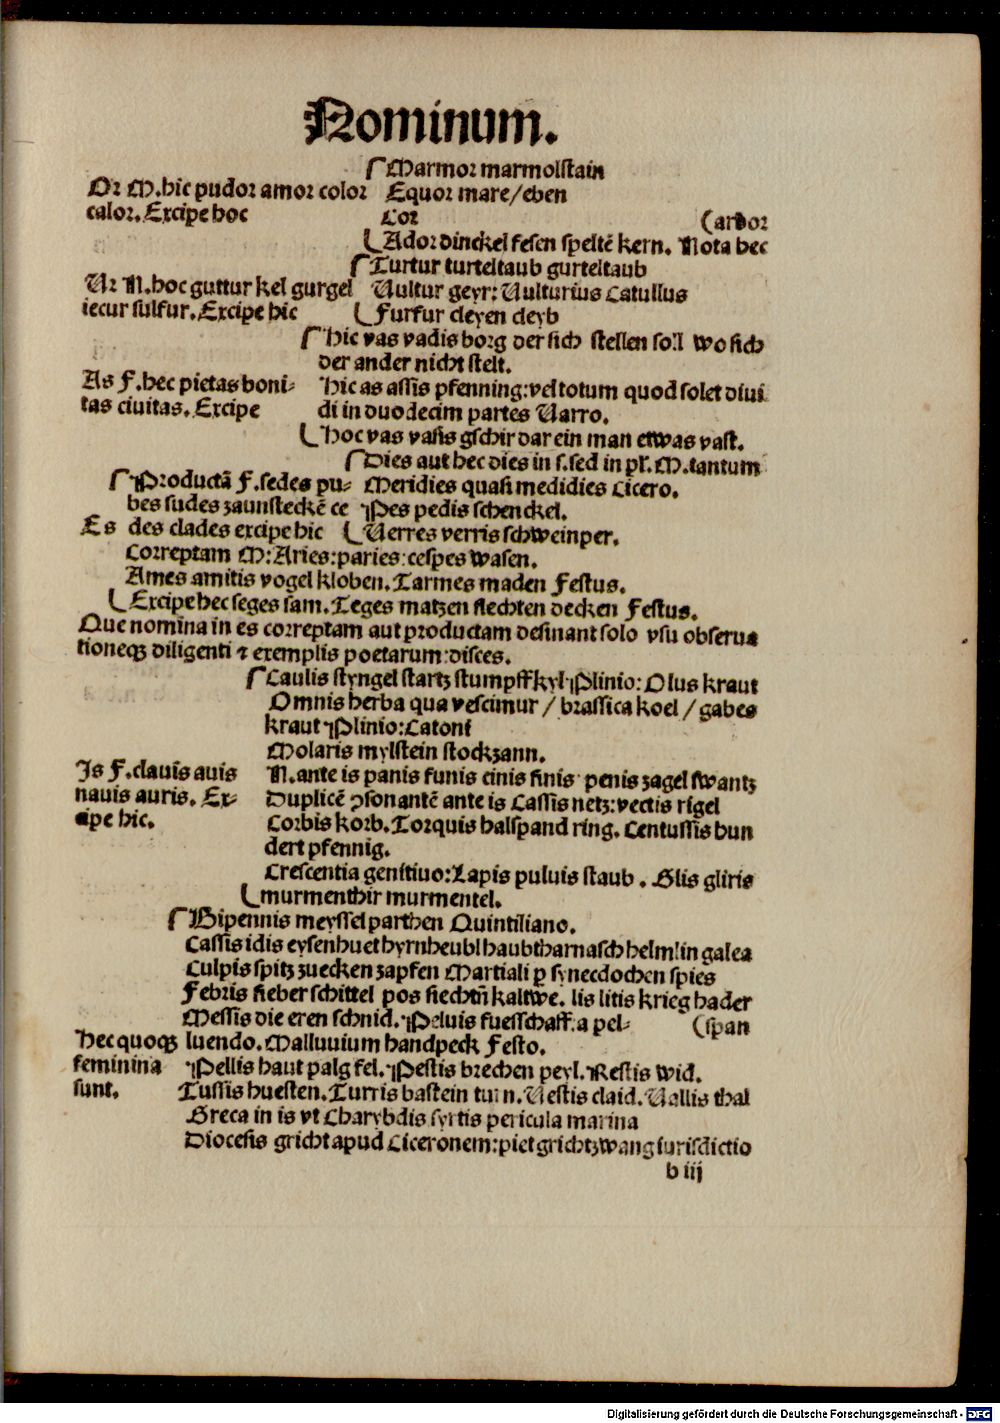 Nominum.
Marmor marmolstain
Or M. hic pudor amor color Equor mare/eben
calor. Excipe hoc Cor (ardor
Ador dinckel fesen speltē kern. Nota hec
Turtur turteltaub gurteltaub
Ur N. hoc guttur kel gurgel Uultur geyr: Uulturius Catullus
iecur sulfur. Excipe hic Furfur cleyen cleyb
Hic vas vadis borg der sich stellen soll wo sich
der ander nicht stelt.
As F. hec pietas boni- Hic as assis pfenning: vel totum quod solet diui
tas ciuitas. Excipe di in duodecim partes Uarro.
Hoc vas vasis gschir dar ein man etwas vast.
Dies aut hec dies in s. sed in pl. M. tantum
Productā F. sedes pu- Meridies quasi medidies Cicero.
bes sudes zaunsteckē ce Pes pedis schenckel.
Es des clades excipe hic Uerres verris schweinper.
Correptam M: Aries: paries: cespes wasen.
Ames amitis vogel kloben. Tarmes maden Festus.
Excipe hec seges sam. Teges matzen flechten decken Festus.
Que nomina in es correptam aut productam desinant solo vsu obserua
tioneqꝫ diligenti ⁊ exemplis poetarum: disces.
Caulis styngel startz stumpff kyl Plinio: Olus kraut
Omnis herba qua vescimur / brassica koel / gabes
kraut Plinio: Catoni
Molaris mylstein stockzann.
Is F. clauis auis N. ante is panis funis cinis finis penis zagel swantz
nauis auris. Ex- Duplicē ꝯsonantē ante is Cassis netz: vectis rigel
cipe hic. Corbis korb. Torquis halspand ring. Centussis hun
dert pfennig.
Crescentia genitiuo: Lapis puluis staub. Glis gliris
murmenthir murmentel.
Bipennis meyssel parthen Quintiliano.
Cassis idis eysenhuet hyrnheubl haubtharnasch helmlin galea
Culpis spitz zuecken zapfen Martiali ꝑ synecdochen spies
Febris fieber schittel pos siechtū kaltwe. lis litis krieg hader
Messis die eren schnid. Peluis fuesschaff. a pel- (span
Hec quoqꝫ luendo. Malluuium handpeck Festo.
feminina Pellis haut palg fel. Pestis brechen peyl. Restis wid.
sunt. Tussis huesten. Turris bastein turn. Uestis claid. Uallis thal
Greca in is vt Charybdis syrtis pericula marina
Diocesis gricht apud Ciceronem: piet grichtzwang iurisdictio
b iij
Digitalisierung gefördert durch die Deutsche Forschungsgemeinschaft - DFG